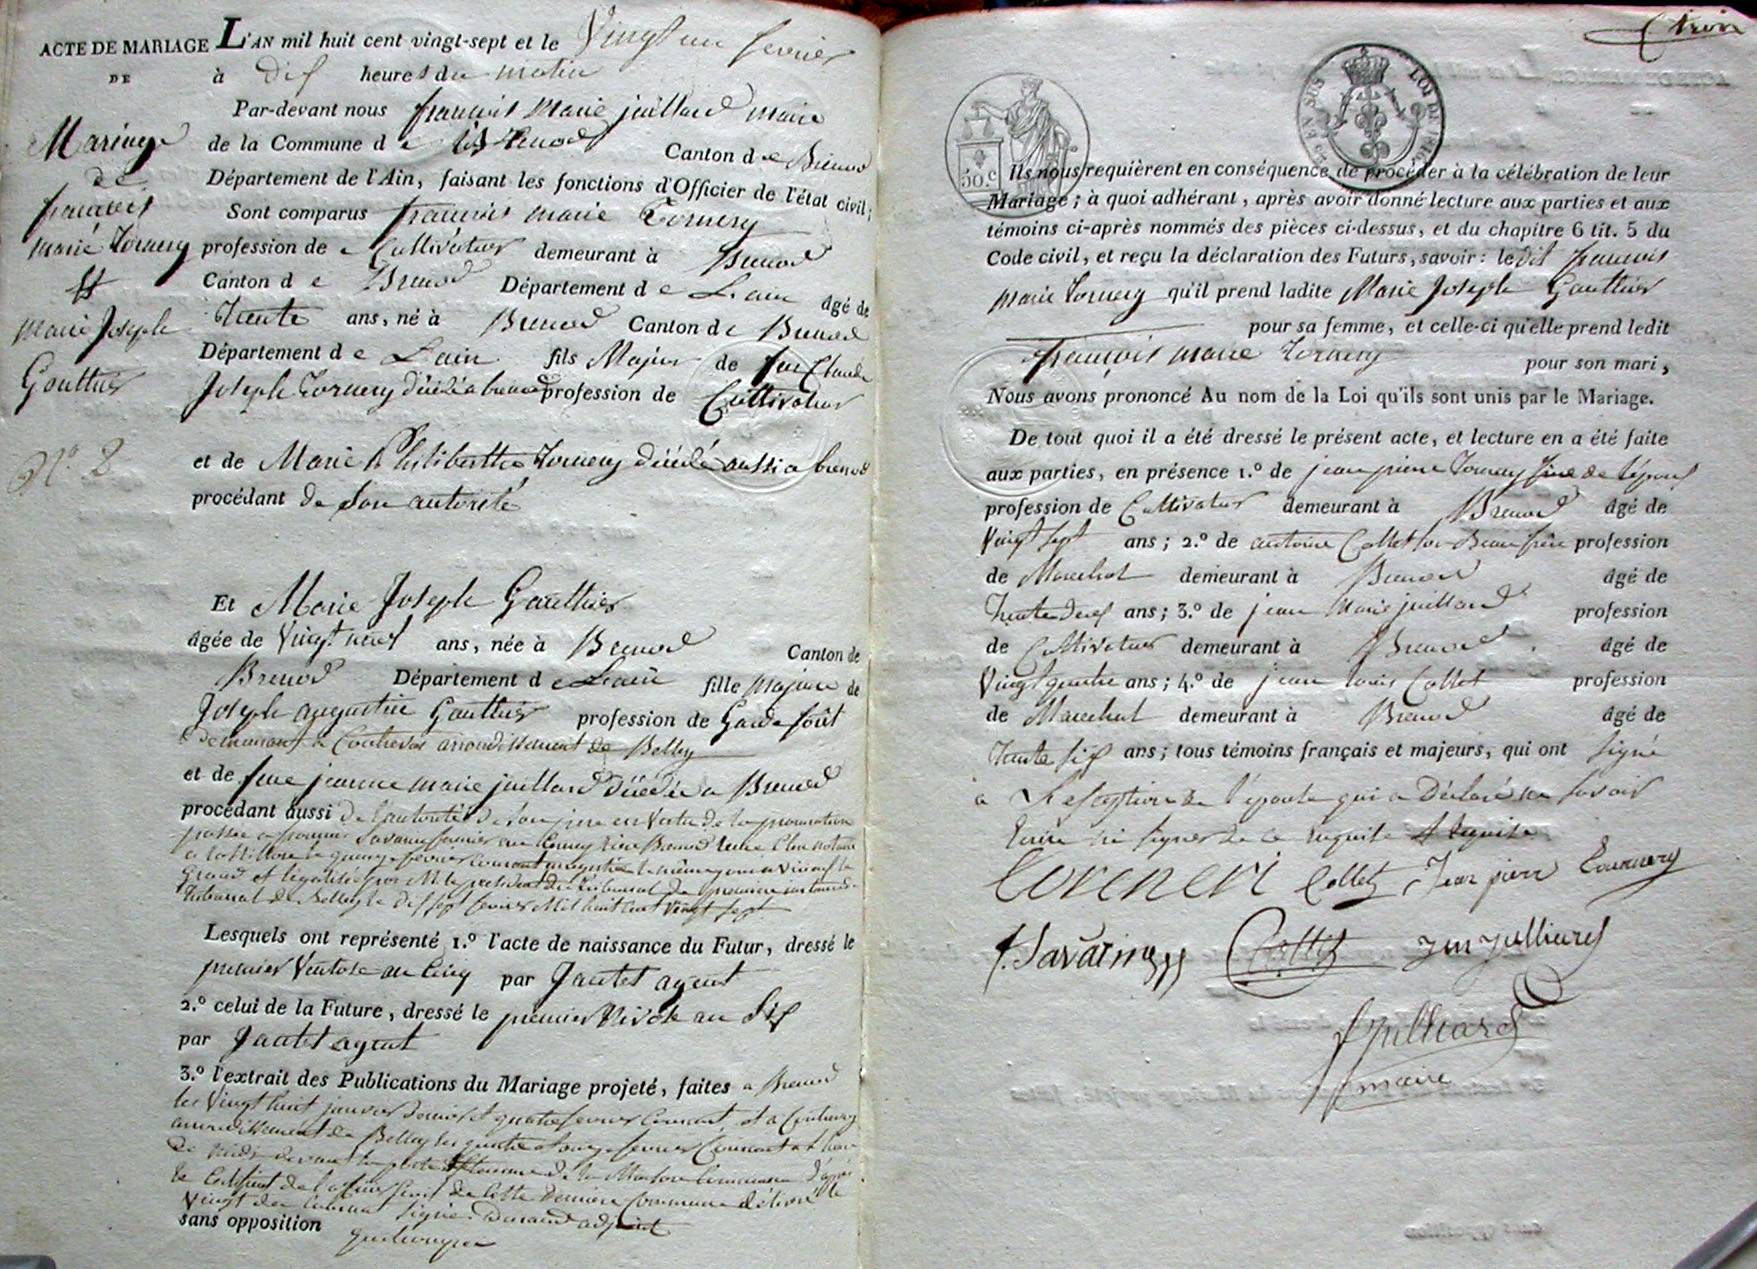 trois
ACTE DE MARIAGE
DE
Mariage
de
françois
marie Tornery
et
marie Joseph
Gauthier
N.o 2
L'AN mil huit cent vingt-sept et le Vingt un fevrier
à dix heures du matin
Par-devant nous françois Marie juillard maire
de la Commune de Brenod Canton de Brenod
Département de l'Ain, faisant les fonctions d'Officier de l'état civil;
Sont comparus françois marie Tornery
profession de Cultivateur demeurant à Brenod
Canton de Brenod Département de L'ain âgé de
Trente ans, né à Brenod Canton de Brenod
Département de L'ain fils Majeur de feu Claude
Joseph Tornery décédé a brenod profession de Cultivateur
et de Marie Philiberthe Tornery décédé aussi a brenod
procédant de son autorité
Et Marie Joseph Gauthier
âgée de Vingt neuf ans, née à Brenod Canton de
Brenod Département de L'ain fille Majeure de
Joseph augustin Gauthier profession de Garde forêt
demeurant a arrondissement de Belley
et de feue jeanne marie juillard décédée a Brenod
procédant aussi de l'autorité de son père en vertu de la procuration
passée a
le quinze fevrier courant enregistrée le même jour a Virieu le
Grand et légalisée par M. le président du tribunal de première instance
tribunal de Belley le dix sept fevrier Mil huit cent vingt sept
Lesquels ont représenté 1.° l'acte de naissance du Futur, dressé le
premier Ventose an Cinq par Jantet agent
2.° celui de la Future, dressé le premier Nivose an Six
par Jantet agent
3.° l'extrait des Publications du Mariage projeté, faites a Brenod
les Vingt huit janvier dernier et quatre fevrier Courant, et a
arrondissement de Belley les quatre et onze fevrier Courant a l'heure
de midi devant la porte de la Maison Commune d'après
le Certificat de de cette dernière Commune délivré le
Vingt du Courant signé Durand adjoint
sans opposition quelconque
50.c
Ils nous requièrent en conséquence de procéder à la célébration de leur
Mariage; à quoi adhérant, après avoir donné lecture aux parties et aux
témoins ci-après nommés des pièces ci-dessus, et du chapitre 6 tit. 5 du
Code civil, et reçu la déclaration des Futurs, savoir: le dit françois
marie Tornery qu'il prend ladite Marie Joseph Gauthier
pour sa femme, et celle-ci qu'elle prend ledit
françois marie Tornery pour son mari,
Nous avons prononcé Au nom de la Loi qu'ils sont unis par le Mariage.
De tout quoi il a été dressé le présent acte, et lecture en a été faite
aux parties, en présence 1.° de jean pierre Tornery frère de l'époux
profession de Cultivateur demeurant à Brenod âgé de
Vingt sept ans; 2.° de antoine Collet son Beau frère profession
de Marechal demeurant à Brenod âgé de
Trente deux ans; 3.° de jean Marie juillard profession
de Cultivateur demeurant à Brenod âgé de
Vingt quatre ans; 4.° de jean louis Collet profession
de Marechal demeurant à Brenod âgé de
Trente six ans; tous témoins français et majeurs, qui ont signé
a l'exception de l'épouse qui a Déclaré ne savoir
Ecrire ni signer de ce requise
Torneri Collet Jean pierre Tournery
Savarin Collet jm julliard
f julliard
maire